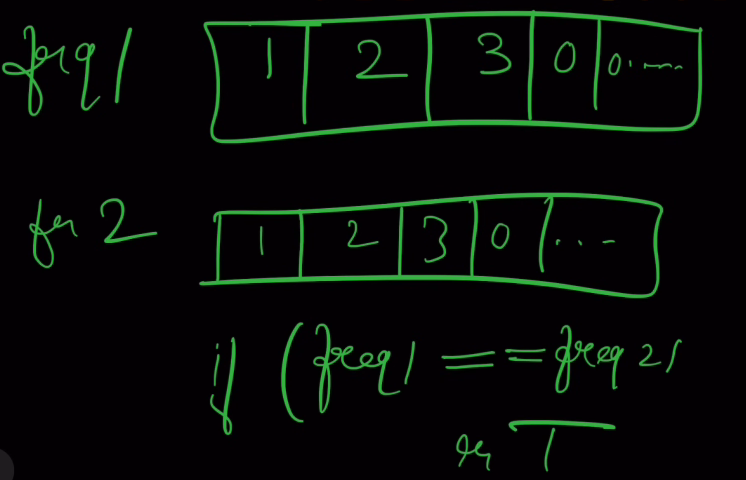 freq1 1 2 3 0 0. ....
fr 2 1 2 3 0 ...
if (freq1 == freq 2)
T